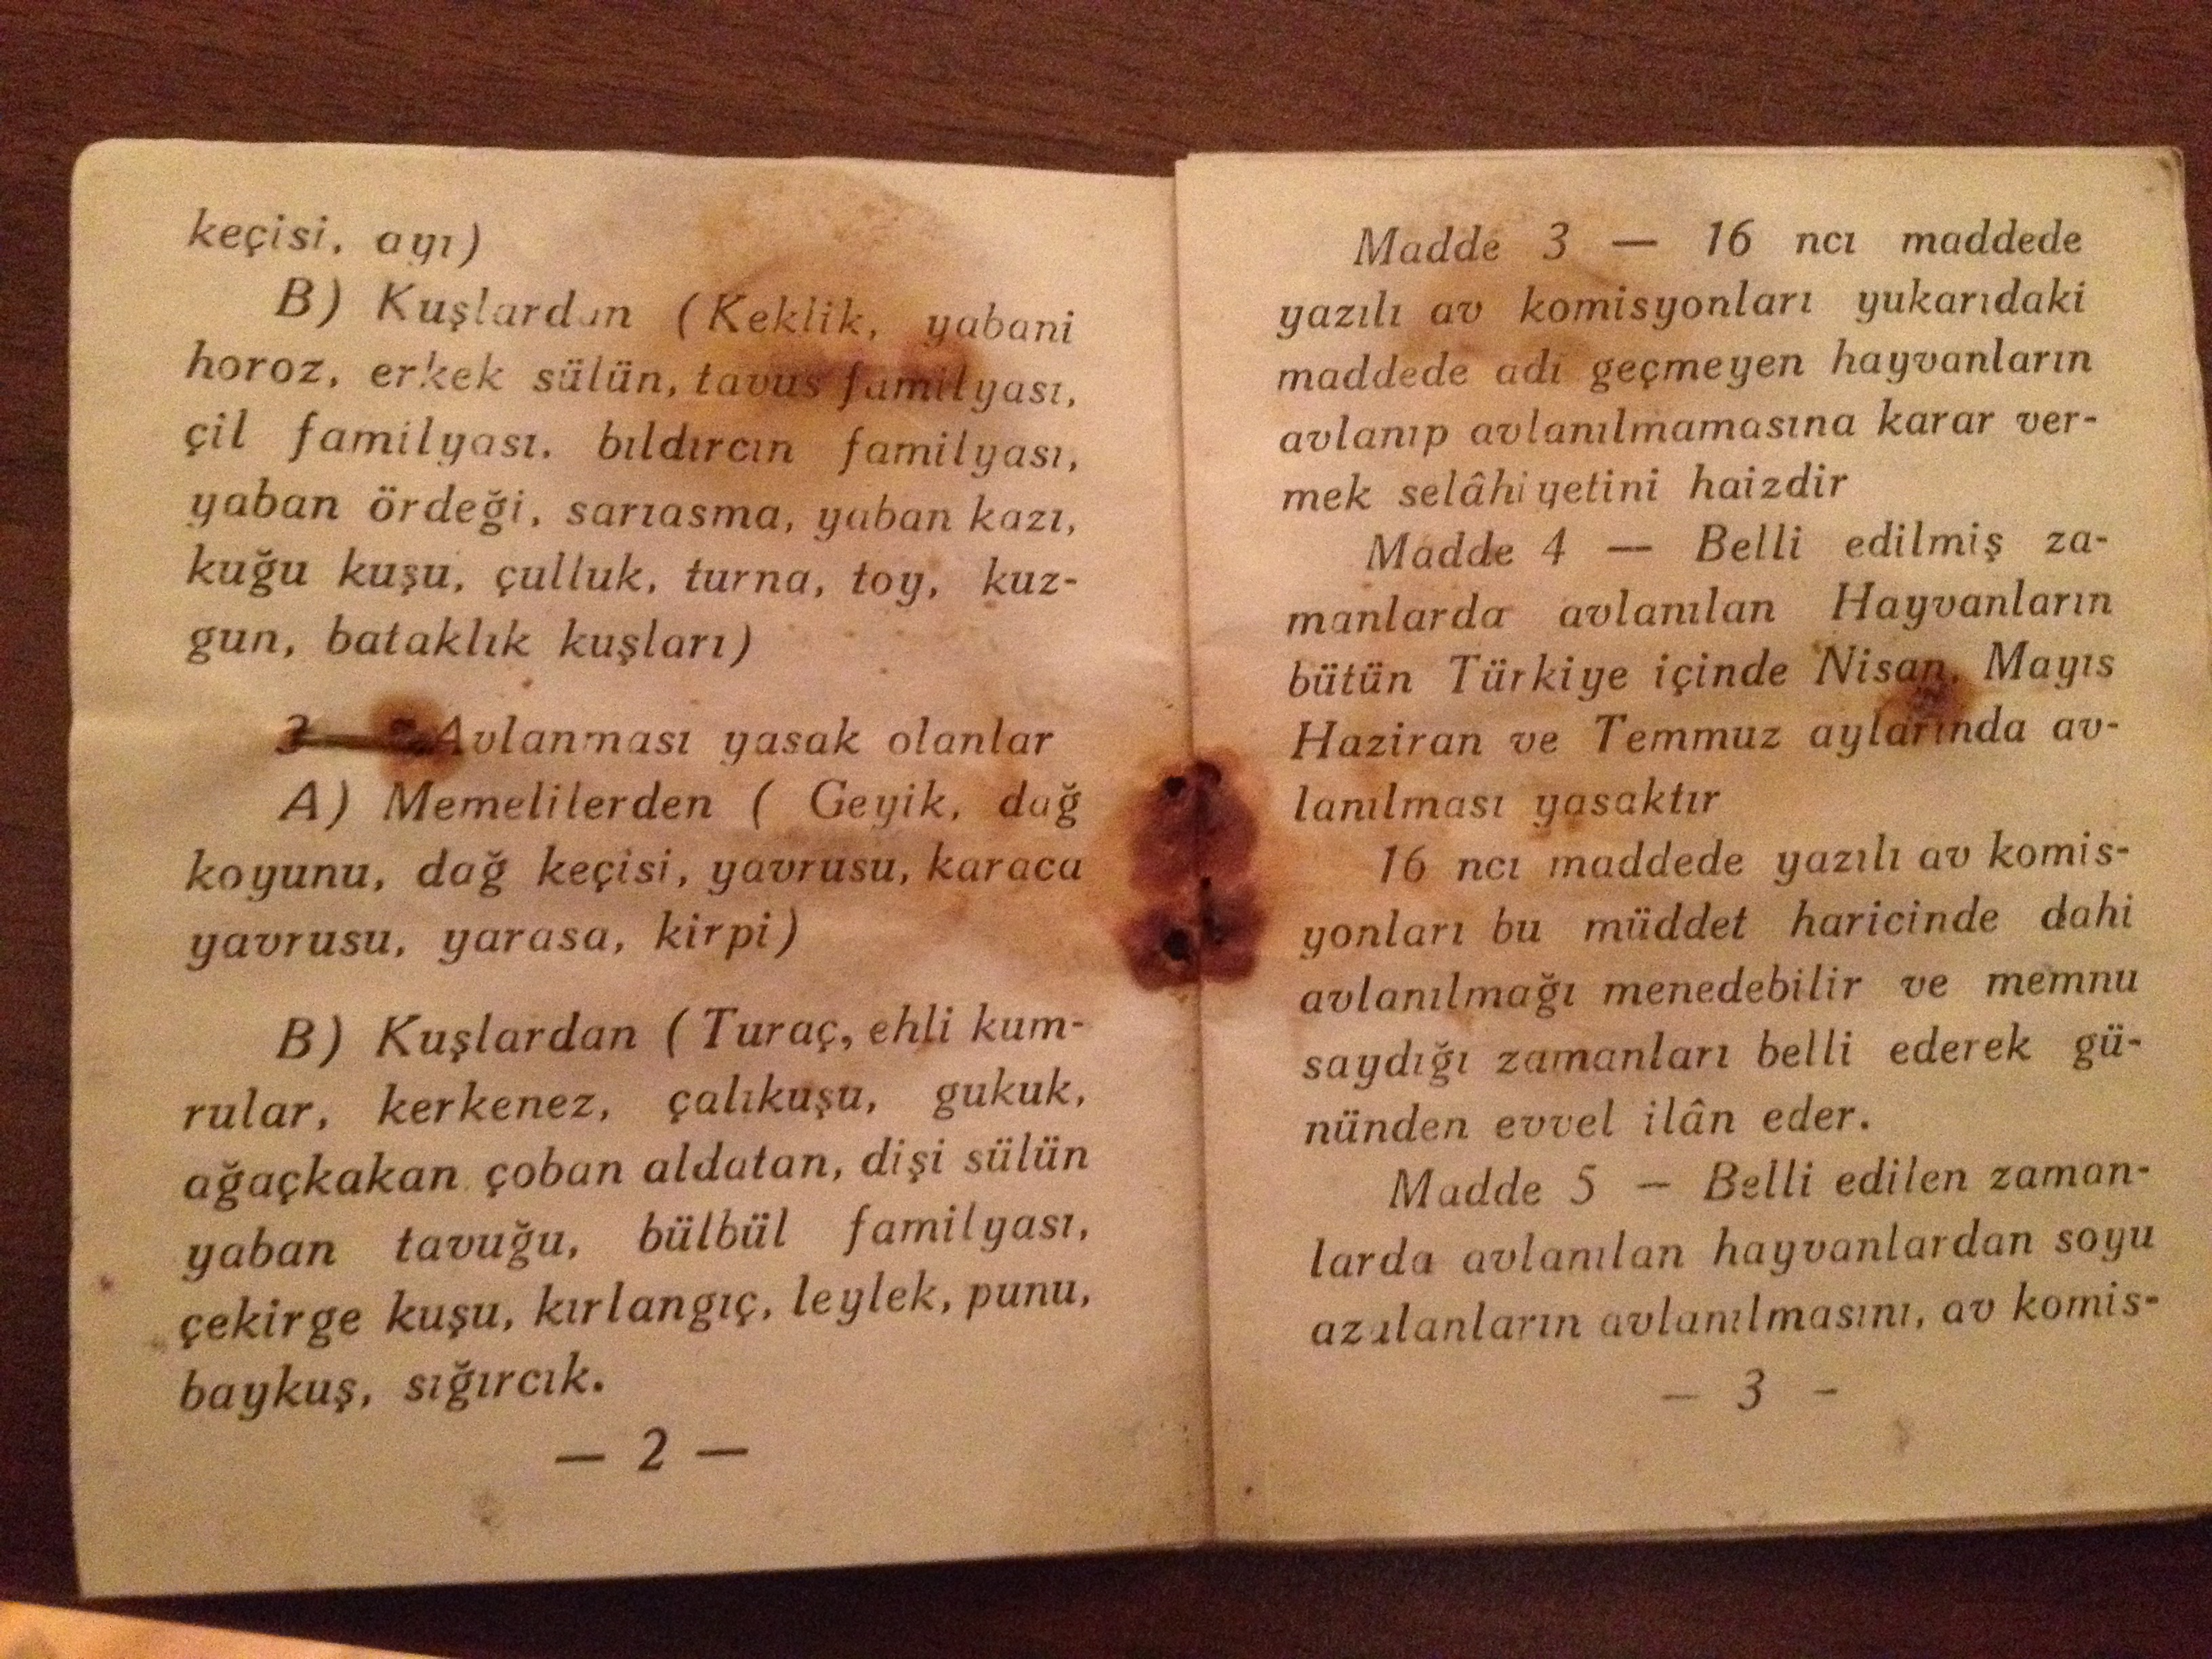 keçisi, ayı)
B) Kuşlardan (Keklik, yabani
horoz, erkek sülün, tavus familyası,
çil familyası. bıldırcın familyası,
yaban ördeği, sarıasma, yaban kazı,
kuğu kuşu, çulluk, turna, toy, kuz-
gun, bataklık kuşları)
3 — Avlanması yasak olanlar
A) Memelilerden ( Geyik, dağ
koyunu, dağ keçisi, yavrusu, karaca
yavrusu, yarasa, kirpi)
B) Kuşlardan ( Turaç, ehli kum-
rular, kerkenez, çalıkuşu, gukuk,
ağaçkakan çoban aldatan, dişi sülün
yaban tavuğu, bülbül familyası,
çekirge kuşu, kırlangıç, leylek, punu,
baykuş, sığırcık.
— 2 —
Madde 3 — 16 ncı maddede
yazılı av komisyonları yukarıdaki
maddede adı geçmeyen hayvanların
avlanıp avlanılmamasına karar ver-
mek selâhiyetini haizdir
Madde 4 — Belli edilmiş za-
manlarda avlanılan Hayvanların
bütün Türkiye içinde Nisan, Mayıs
Haziran ve Temmuz aylarında av-
lanılması yasaktır
16 ncı maddede yazılı av komis-
yonları bu müddet haricinde dahi
avlanılmağı menedebilir ve memnu
saydığı zamanları belli ederek gü-
nünden evvel ilân eder.
Madde 5 — Belli edilen zaman-
larda avlanılan hayvanlardan soyu
azalanların avlanılmasını, av komis-
— 3 -